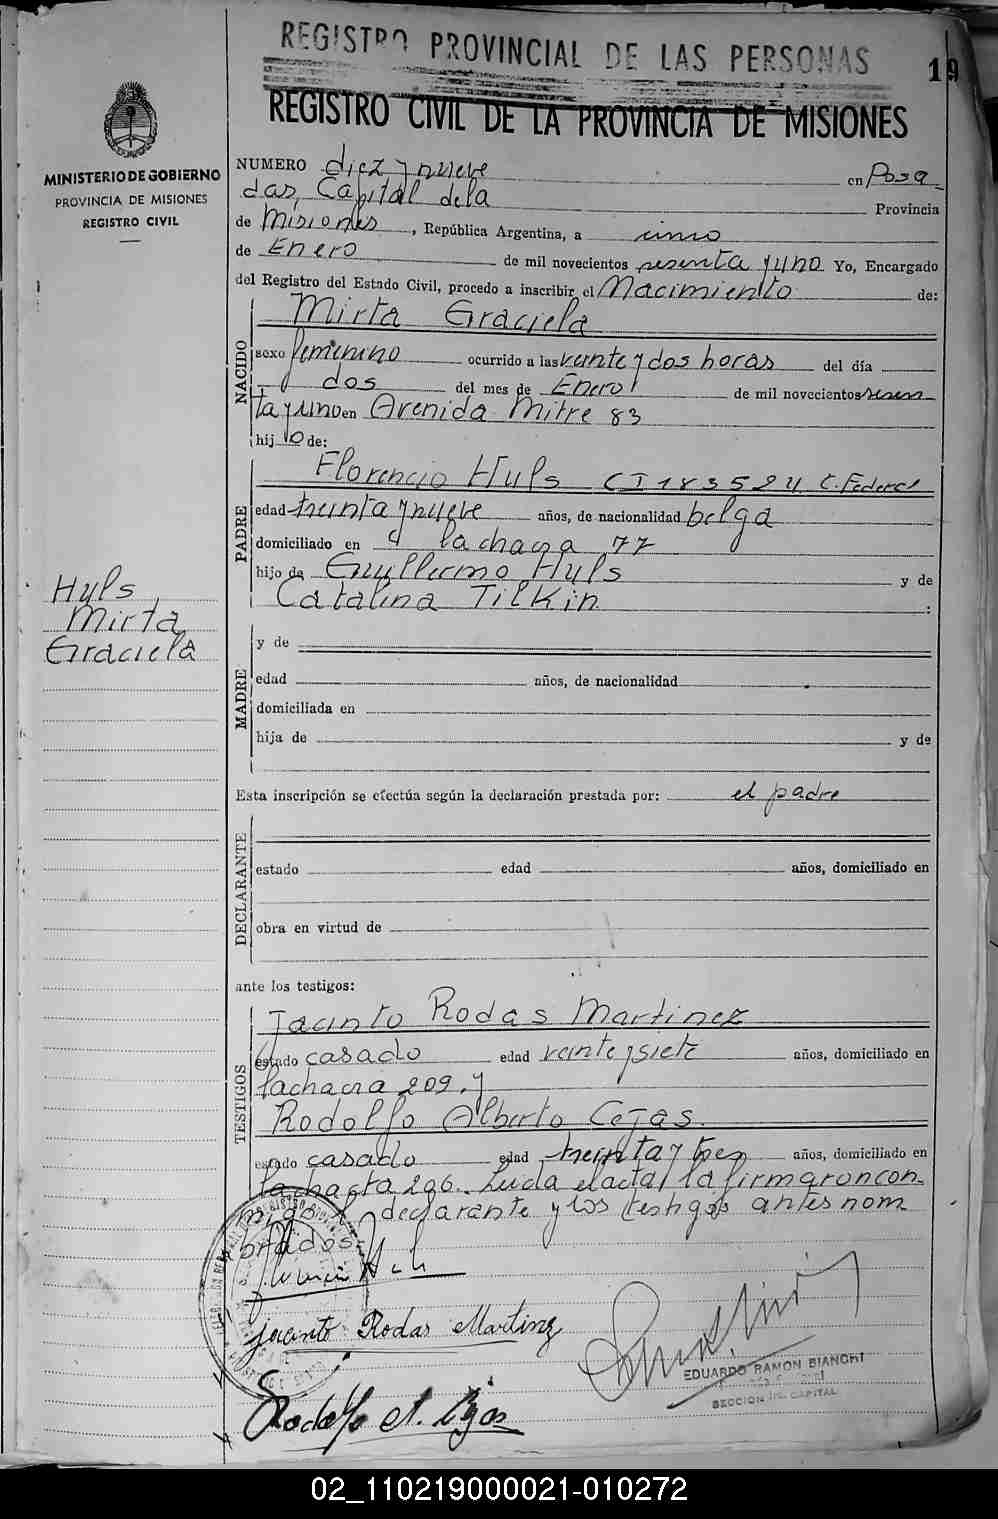 REGISTRO PROVINCIAL DE LAS PERSONAS
19
REGISTRO CIVIL DE LA PROVINCIA DE MISIONES
MINISTERIO DE GOBIERNO
PROVINCIA DE MISIONES
REGISTRO CIVIL
NUMERO diez y nueve en Posa
das, Capital de la Provincia
de Misiones, República Argentina, a cinco
de Enero de mil novecientos sesenta y uno Yo, Encargado
del Registro del Estado Civil, procedo a inscribir el Nacimiento de:
NACIDO
Mirta Graciela
sexo femenino ocurrido a las veinte y dos horas del día
dos del mes de Enero de mil novecientos sesen
ta y uno en Avenida Mitre 83
hijo de:
PADRE
Florencio Huls CI 183524 C. Federal
edad treinta y nueve años, de nacionalidad belga
domiciliado en la chacra 77
hijo de Guillermo Huls y de
Catalina Tilkin :
Huls,
Mirta
Graciela
MADRE
y de
edad años, de nacionalidad
domiciliada en
hija de y de
Esta inscripción se efectúa según la declaración prestada por: el padre
DECLARANTE
estado edad años, domiciliado en
obra en virtud de
ante los testigos:
TESTIGOS
Jacinto Rodas Martinez
estado casado edad veinte y siete años, domiciliado en
la chacra 209. y
Rodolfo Alberto Cejas.
estado casado edad treinta y tres años, domiciliado en
la chacra 206. Leida el acta, la firmaron con
migo el declarante y los testigos antes nom
brados
Jacinto Rodas Martinez
Rodolfo A. Cejas
EDUARDO RAMON BIANCHI
SECCION CAPITAL
02_110219000021-010272